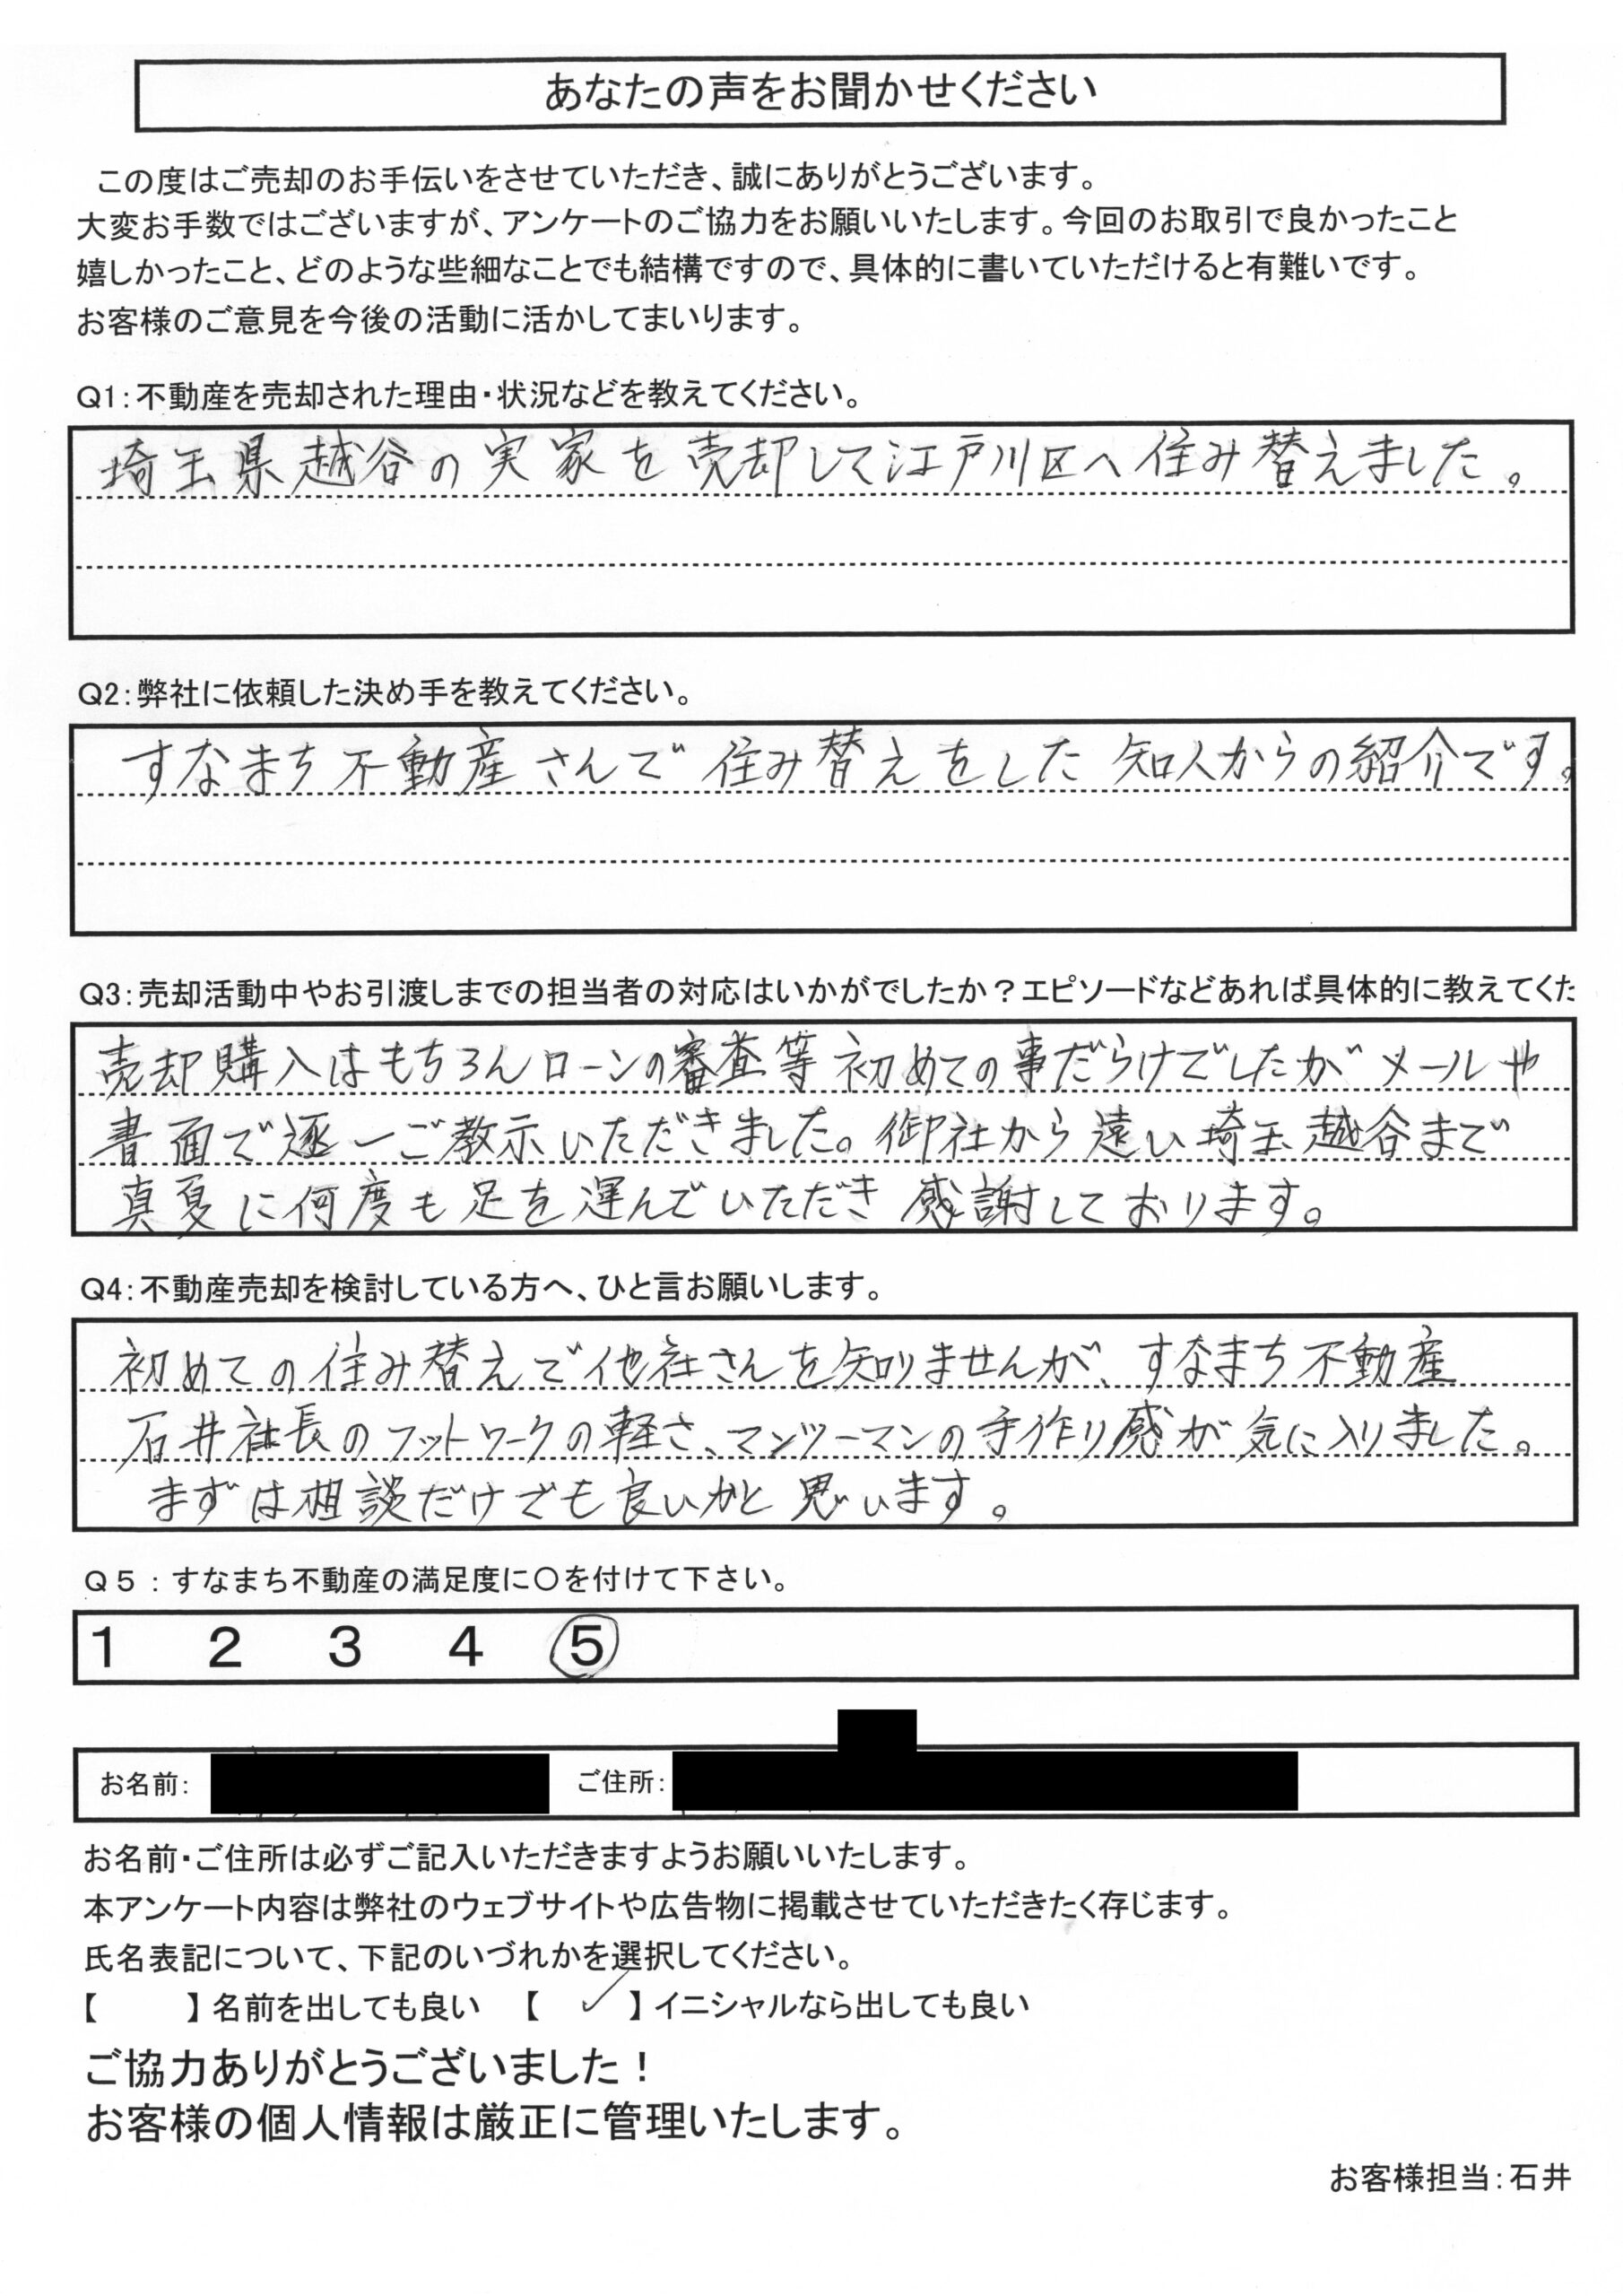 あなたの声をお聞かせください
この度はご売却のお手伝いをさせていただき、誠にありがとうございます。
大変お手数ではございますが、アンケートのご協力をお願いいたします。今回のお取引で良かったこと
嬉しかったこと、どのような些細なことでも結構ですので、具体的に書いていただけると有難いです。
お客様のご意見を今後の活動に活かしてまいります。
Q1:不動産を売却された理由・状況などを教えてください。
埼玉県越谷の実家を売却して江戸川区へ住み替えました。
Q2:弊社に依頼した決め手を教えてください。
すなまち不動産さんで住み替えをした知人からの紹介です。
Q3:売却活動中やお引渡しまでの担当者の対応はいかがでしたか?エピソードなどあれば具体的に教えてくた
売却購入はもちろんローンの審査等初めての事だらけでしたがメールや
書面で逐一ご教示いただきました。御社から遠い埼玉越谷まで
真夏に何度も足を運んでいただき感謝しております。
Q4:不動産売却を検討している方へ、ひと言お願いします。
初めての住み替えで他社さんを知りませんが、すなまち不動産
石井社長のフットワークの軽さ、マンツーマンの手作り感が気に入りました。
まずは相談だけでも良いかと思います。
Q5:すなまち不動産の満足度に〇を付けて下さい。
1 2 3 4 5
お名前: ご住所:
お名前・ご住所は必ずご記入いただきますようお願いいたします。
本アンケート内容は弊社のウェブサイトや広告物に掲載させていただきたく存じます。
氏名表記について、下記のいづれかを選択してください。
【 】名前を出しても良い 【 ✓ 】イニシャルなら出しても良い
ご協力ありがとうございました!
お客様の個人情報は厳正に管理いたします。
お客様担当:石井